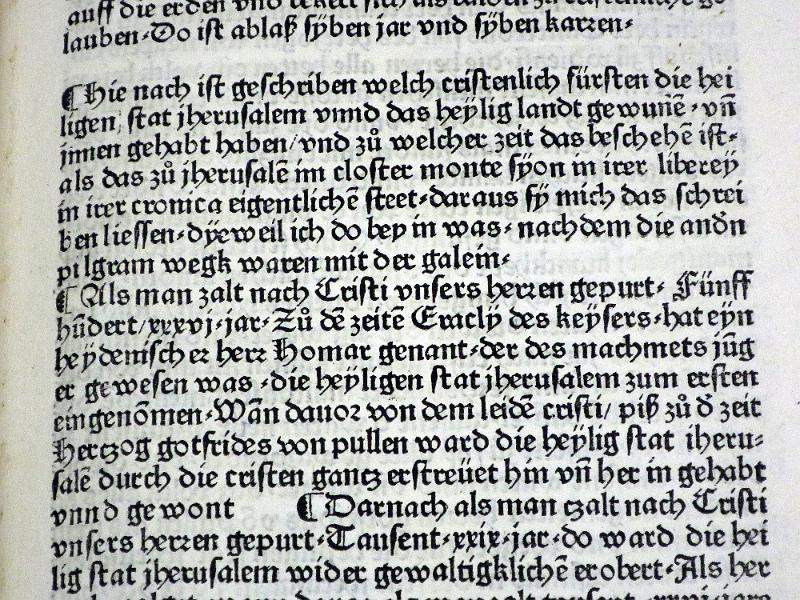 auff die erden vnd
lauben·Do ist ablaß sÿben jar vnd sÿben karren·
¶Hie nach ist geschriben welch cristenlich fürsten die hei
ligen stat jherusalem vnnd das heÿlig landt gewuñē·vñ
jnnen gehabt haben/vnd zů welcher zeit das beschehē ist·
als das zů jherusalē im closter monte sÿon in irer liberey
in irer cronica eigentlichē steet·daraus sÿ mich das schrei
ben liessen·dÿeweil ich do bey in was·nachdem die andn
pilgram wegk waren mit der galein·
¶Als man zalt nach Cristi vnsers herren gepurt·Fünff
hūdert/xxxvj·jar·Zů dē zeitē Eraclÿ des keÿsers·hat eÿn
heÿdenischer herr Homar genant·der des machmets jūg
er gewesen was·die heÿligen stat jherusalem zum ersten
eingenōmen·Wān dauor von dem leidē cristi/piß zů d̄ zeit
Hertzog gotfrides von pullen ward die heÿlig stat iheru⸗
salē durch die cristen gantz erstreüet hin vñ her in gehabt
vnnd gewont ¶Darnach als man tzalt nach Cristi
vnsers herren gepurt·Tausent·xxix·jar·do ward die hei
lig stat jherusalem wider gewaltigklichē erobert·Als her